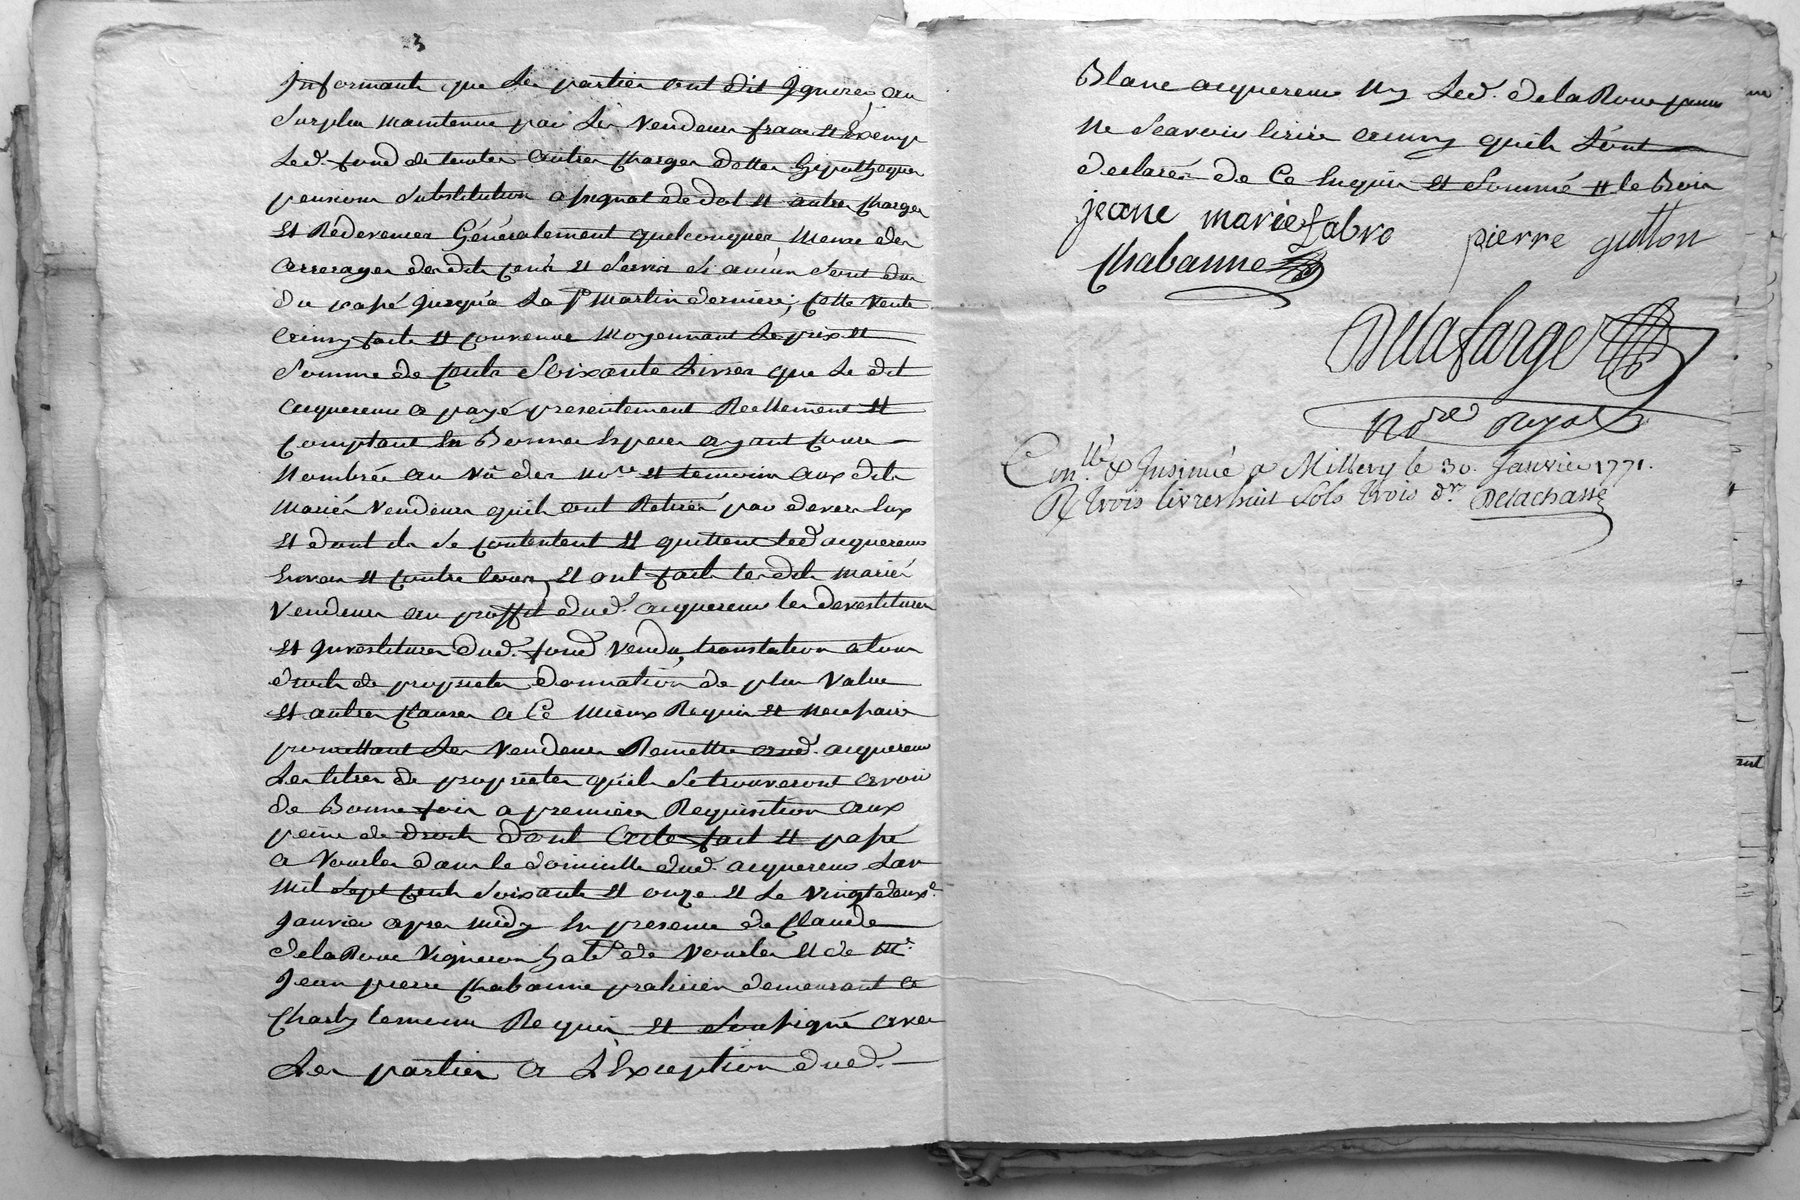 3
Informante que les parties ont dit Ignorer, au
Surplus maintenue par les Vendeurs franc et Exempt
Led. fond de toutes autres Charges dettes hipotheques
pensions Substitution assignat de dot et autres Charges
et Redevances Généralement quelconques, meme des
arrerages des dits cens et Servis Si aucuns Sont dus
du passé jusqu'a la St Martin derniere; Cette Vente
ainsy faite et convenue moyennant le prix et
Somme de Cents Soixante Livres que le dit
acquereur a payé presentement Reellement et
Comptant en Bonnes Especes ayant Cours
Nombrée au vû des nore et temoins aux dits
mariés Vendeurs qu'ils ont Retirés par devers Eux
et dont ils Se Contentent et quittent led. acquereur
Envers et contre tous, et ont fait les dits mariés
Vendeurs au proffit dud. acquereur les devestitures
et Investitures dud. fond vendu, translation a tous
droits de proprieté donnation de plus Value
et autres Clauses a Ce mieux Requis et necessaire
promettant les Vendeurs Remettre aud. acquereur
Les titres de proprietés qu'ils Se trouveront avoir
de Bonne foix a premiere Requisition aux
peine de droit dont Acte fait et passé
a Vourles dans le domicille dud. acquereur Lan
mil Sept Cents Soixante et onze et Le vingt deuxe
Janvier apres midy En presence de Claude
delaRoue Vigneron habt de Vourles et de Mr
Jean pierre Chabanne praticien demeurant a
Charly temoins Requis et Soussigné avec
Les parties a L'Exception dud.
Blanc acquereur ny Led. delaRoue pour
ne Sçavoir Ecrire ainsy qu'ils L'ont
declarés de Ce Enquis et Sommé
jeane marie fabro pierre gutton
Chabanne
Delafarge
Nore Royal
Conllé & Insinué a Millery le 30. Janvier 1771.
R trois livres huit Sols trois drs Delachasse